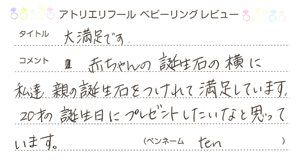 アトリエリフール ベビーリングレビュー
タイトル 大満足です。
コメント 赤ちゃんの誕生石の横に
私達、親の誕生石をつけれて満足しています。
20才の誕生日にプレゼントしたいなと思って
います。 (ペンネーム ten )